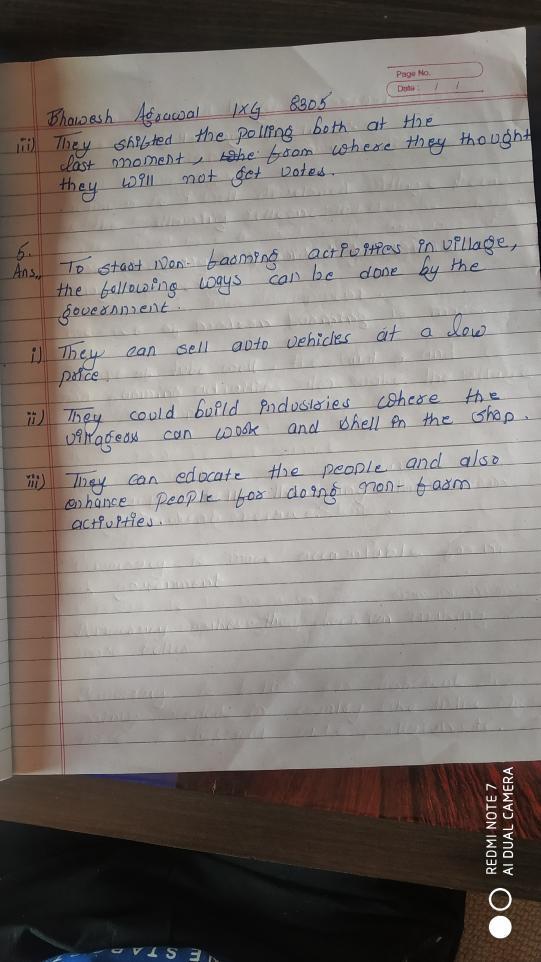 Page No.
Date : / /
Bhawesh Agarwal IXG 8305
iii) They shifted the polling both at the
last moment, from where they thought
they will not get votes.
5.
Ans.. To start Non-farming activities in village,
the following ways can be done by the
government.
i) They can sell auto vehicles at a low
price.
ii) They could build industries where the
villagers can work and shell in the shop.
iii) They can educate the people and also
enhance people for doing non-farm
activities.
REDMI NOTE 7
AI DUAL CAMERA